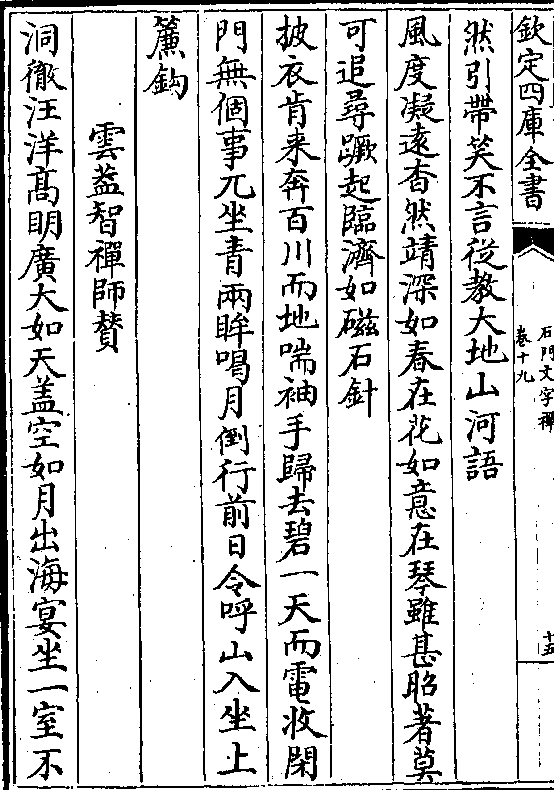 欽定四庫全書
石門文字禪
卷十九
十五
然引帶笑不言從教大地山河語
風度凝遠杳然靖深如春在花如意在琴雖甚昭著莫
可追尋蹶起臨濟如磁石針
披衣肯来奔百川而地喘袖手歸去碧一天而電收閉
門無個事兀坐青兩眸喝月倒行前日令呼山入坐上
簾鈎
雲葢智禪師賛
洞徹汪洋髙明廣大如天盖空如月出海宴坐一室不